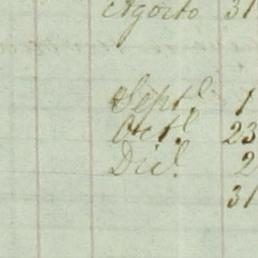 Agosto 31
Sept.e 1
Oct.e 23
Dic.e 2
31